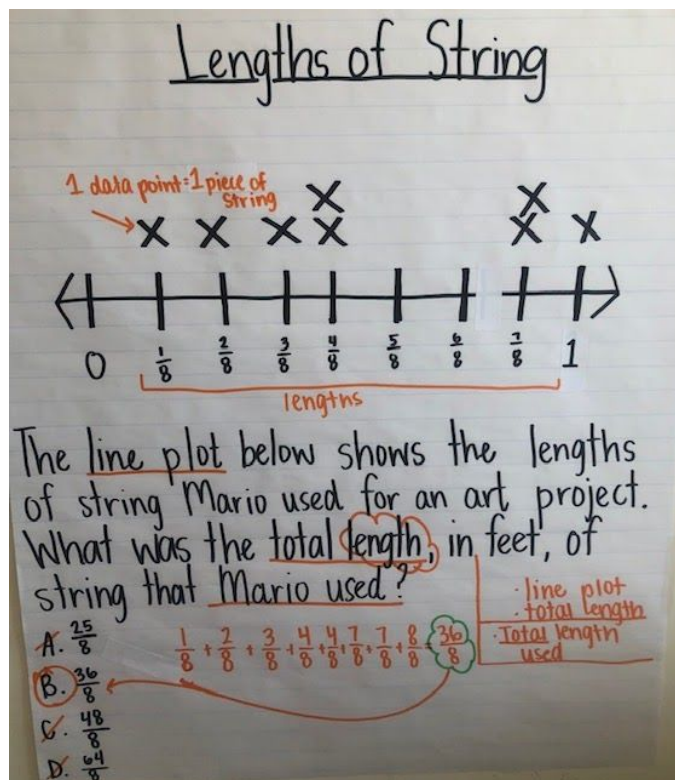 Lengths of String
1 data point = 1 piece of
string
0 1/8 2/8 3/8 4/8 5/8 6/8 7/8 1
lengths
The line plot below shows the lengths
of string Mario used for an art project.
What was the total length, in feet, of
string that Mario used?
· line plot
· total length
· Total length
used
A. 25/8
1/8 + 2/8 + 3/8 + 4/8 + 4/8 + 7/8 + 7/8 + 8/8 36/8
B. 36/8
C. 48/8
D. 64/8